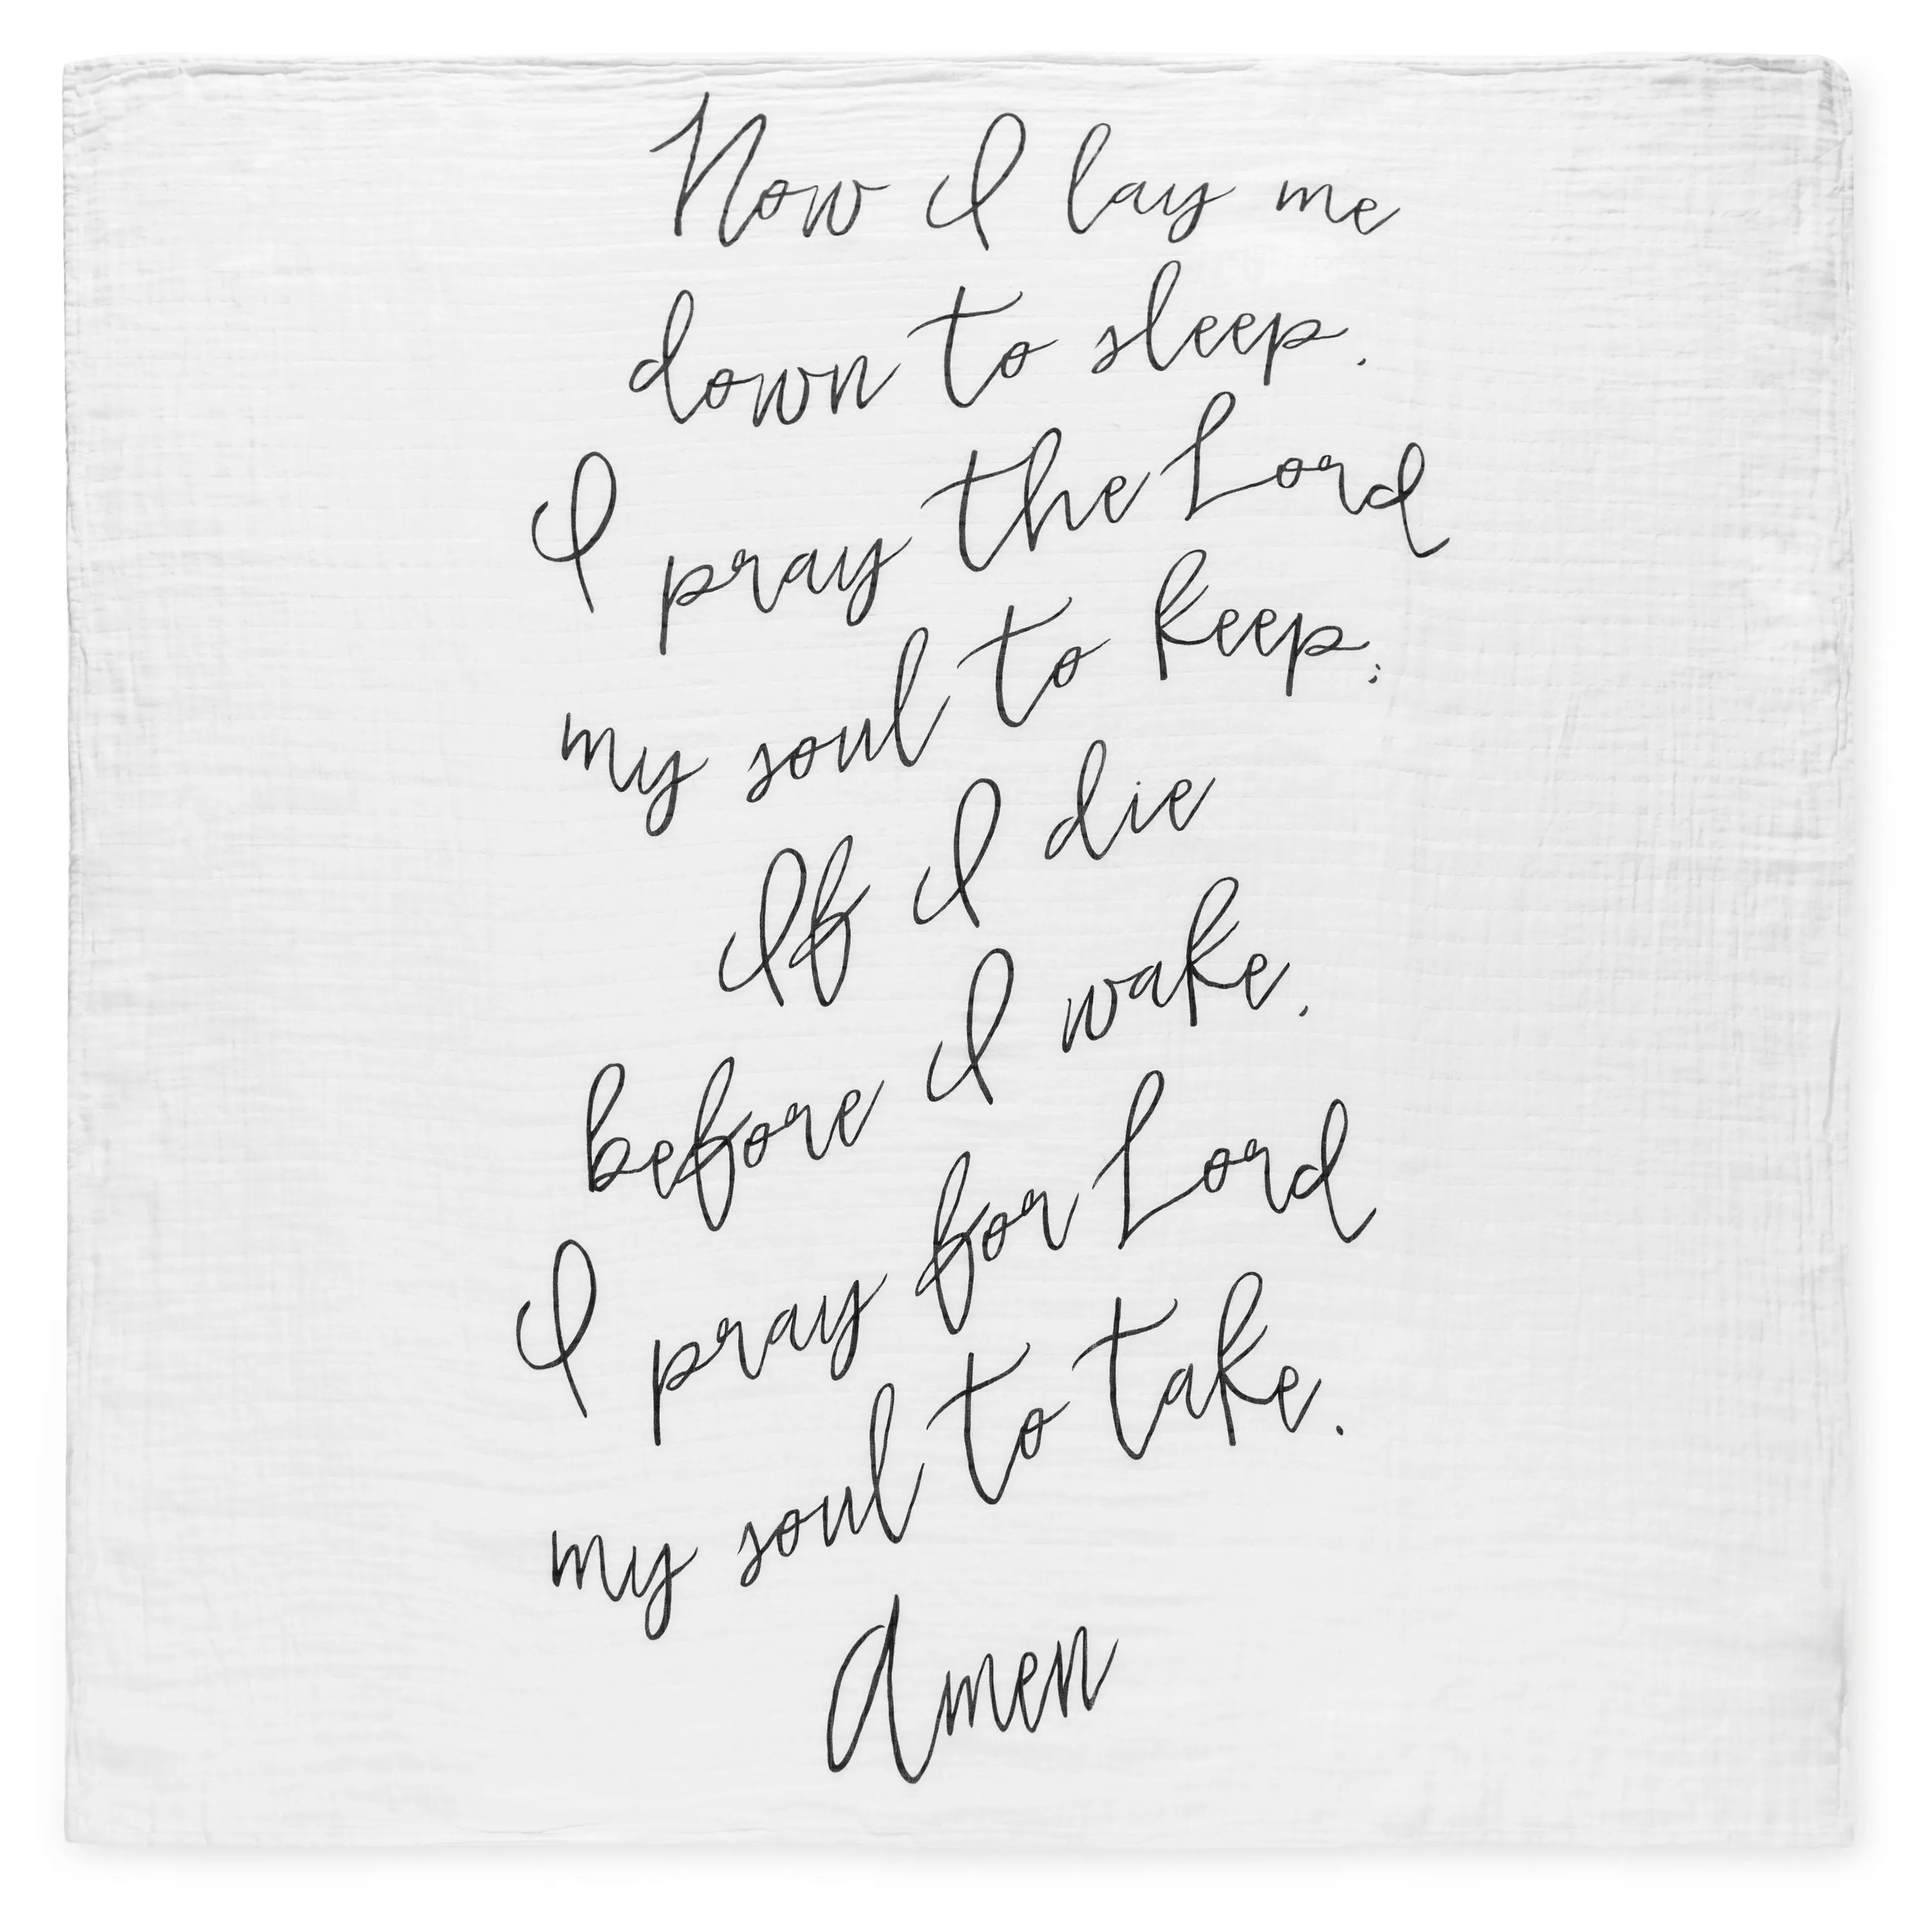 Now I lay me
down to sleep.
I pray the Lord
my soul to keep;
If I die
before I wake,
I pray for Lord
my soul to take.
Amen